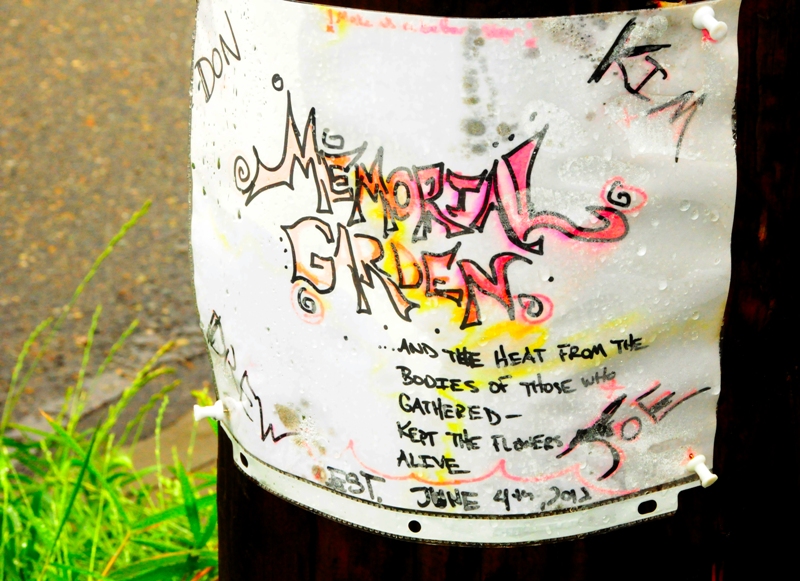 DON
KIM
MEMORIAL
GARDEN
...AND THE HEAT FROM THE
BODIES OF THOSE WHO
GATHERED-
KEPT THE FLOWERS
ALIVE
DREW
JOE
EST. JUNE 4th, 2012